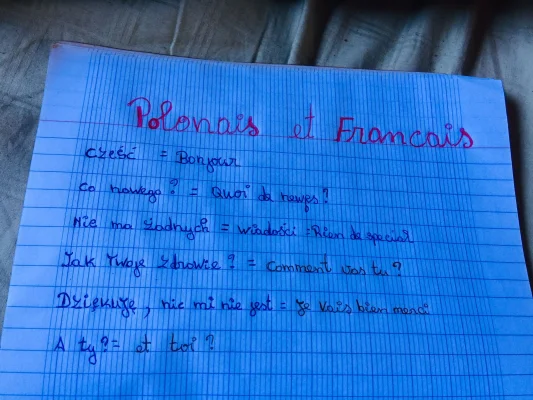 Polonais et Francais
cześć = Bonjour
Co nowego? = Quoi de neufs?
Nie ma żadnych = wiadości = Rien de special
Jak Twoje zdrowie? = Comment vas tu?
Dziękuję, nic mi nie jest = Je vais bien merci
A ty? = et toi?